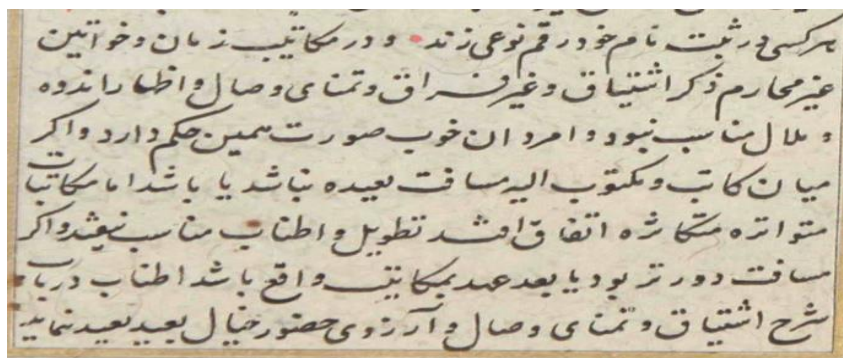 هر کسی در ثبت نام خود رقم نوعی زند و در مکاتیب زنان و خواتین
غیر محارم ذکر اشتیاق و غیر فراق و تمنای وصال و اظهار اندوه
و ملال مناسب نبود و امردان خوب صورت همین حکم دارد و اکر
میان کاتب و مکتوب الیه مسافت بعیده نباشد یا باشد اما مکاتبات
متواتره متکاثره اتفاق افتد تطویل و اطناب مناسب نیفتد و اکر
مسافت دورتر بود یا بعد عهد بمکاتبت واقع باشد اطناب در باب
شرح اشتیاق و تمنای وصال و آرزوی حضور خیال بعید بعید ننماید